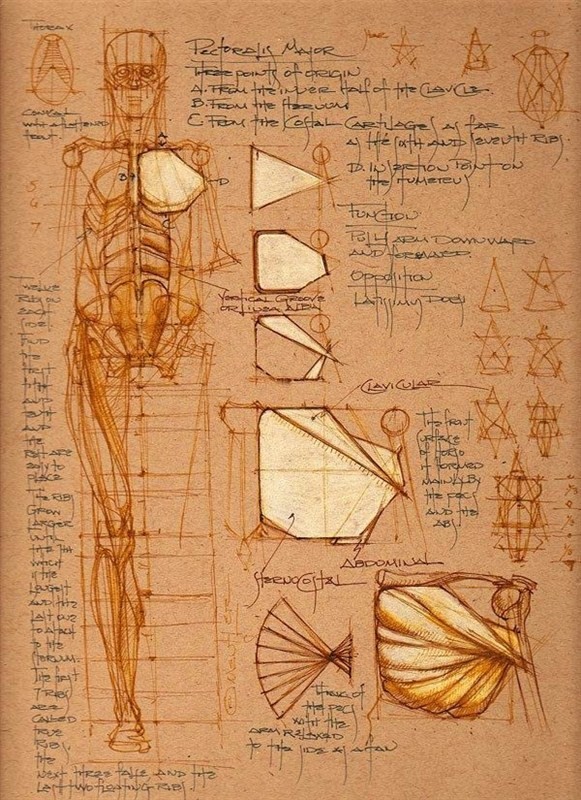 THORAX
CONICAL
WITH A FLATTENED
FRONT.
PECTORALIS MAJOR
THREE POINTS OF ORIGIN
A. FROM THE INNER HALF OF THE CLAVICLE.
B. FROM THE STERNUM
C. FROM THE COSTAL CARTILAGES AS FAR
AS THE SIXTH AND SEVENTH RIBS
D. INSERTION POINT ON
THE HUMERUS
FUNCTION
PULL ARM DOWNWARD
AND FORWARD.
OPPOSITION
LATISSIMUS DORSI
B
D
5
6
7
VERTICAL GROOVE
OR LINEA ALBA
CLAVICULAR
THE FRONT
SURFACE
OF TORSO
IS FORMED
MAINLY BY
THE PECS
AND THE
ABS.
ABDOMINAL
STERNOCOSTAL
THINK OF
THE PECS
WITH THE
ARM RELAXED
TO THE SIDE AS A FAN
TWELVE
RIBS ON
EACH
SIDE.
THE
FIRST
AND
AND
THE
ARE
EASY TO
PLACE
THE RIBS
GROW
LARGER
UNTIL
THE 7TH
WHICH
IS THE
LONGEST
AND THE
LAST ONE
TO ATTACH
TO THE
STERNUM.
THE FIRST
7 RIBS
ARE
CALLED
TRUE
RIBS.
THE
NEXT THREE FALSE AND THE
LAST TWO FLOATING RIBS.